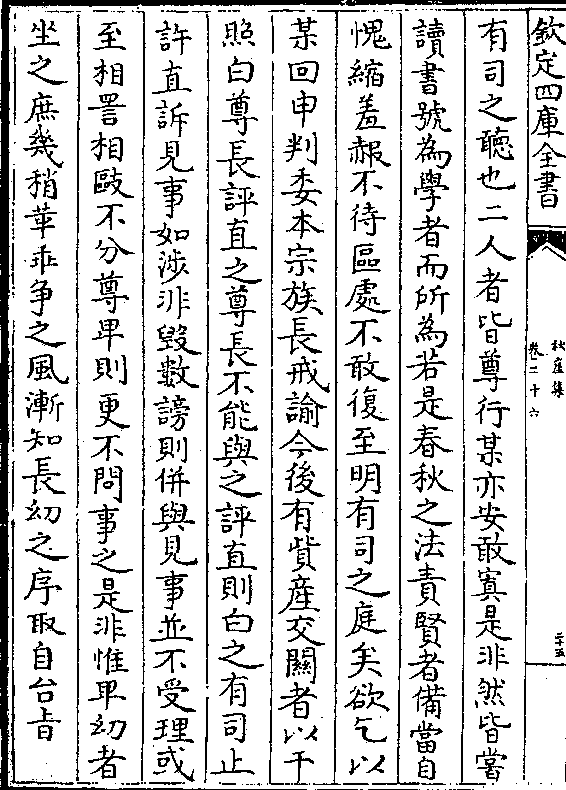 欽定四庫全書
秋崖集
卷二十六
二十五
有司之聽也二人者皆尊行某亦安敢寘是非然皆嘗
讀書號為學者而所為若是春秋之法責賢者備當自
愧縮羞赧不待區處不敢復至明有司之庭矣欲乞以
某回申判委本宗族長戒諭今後有貲產交關者以干
照白尊長評直之尊長不能與之評直則白之有司止
許直訴見事如涉非毀數謗則併與見事並不受理或
至相詈相毆不分尊卑則更不問事之是非惟卑幼者
坐之庶幾稍革乖争之風漸知長幼之序取自台㫖